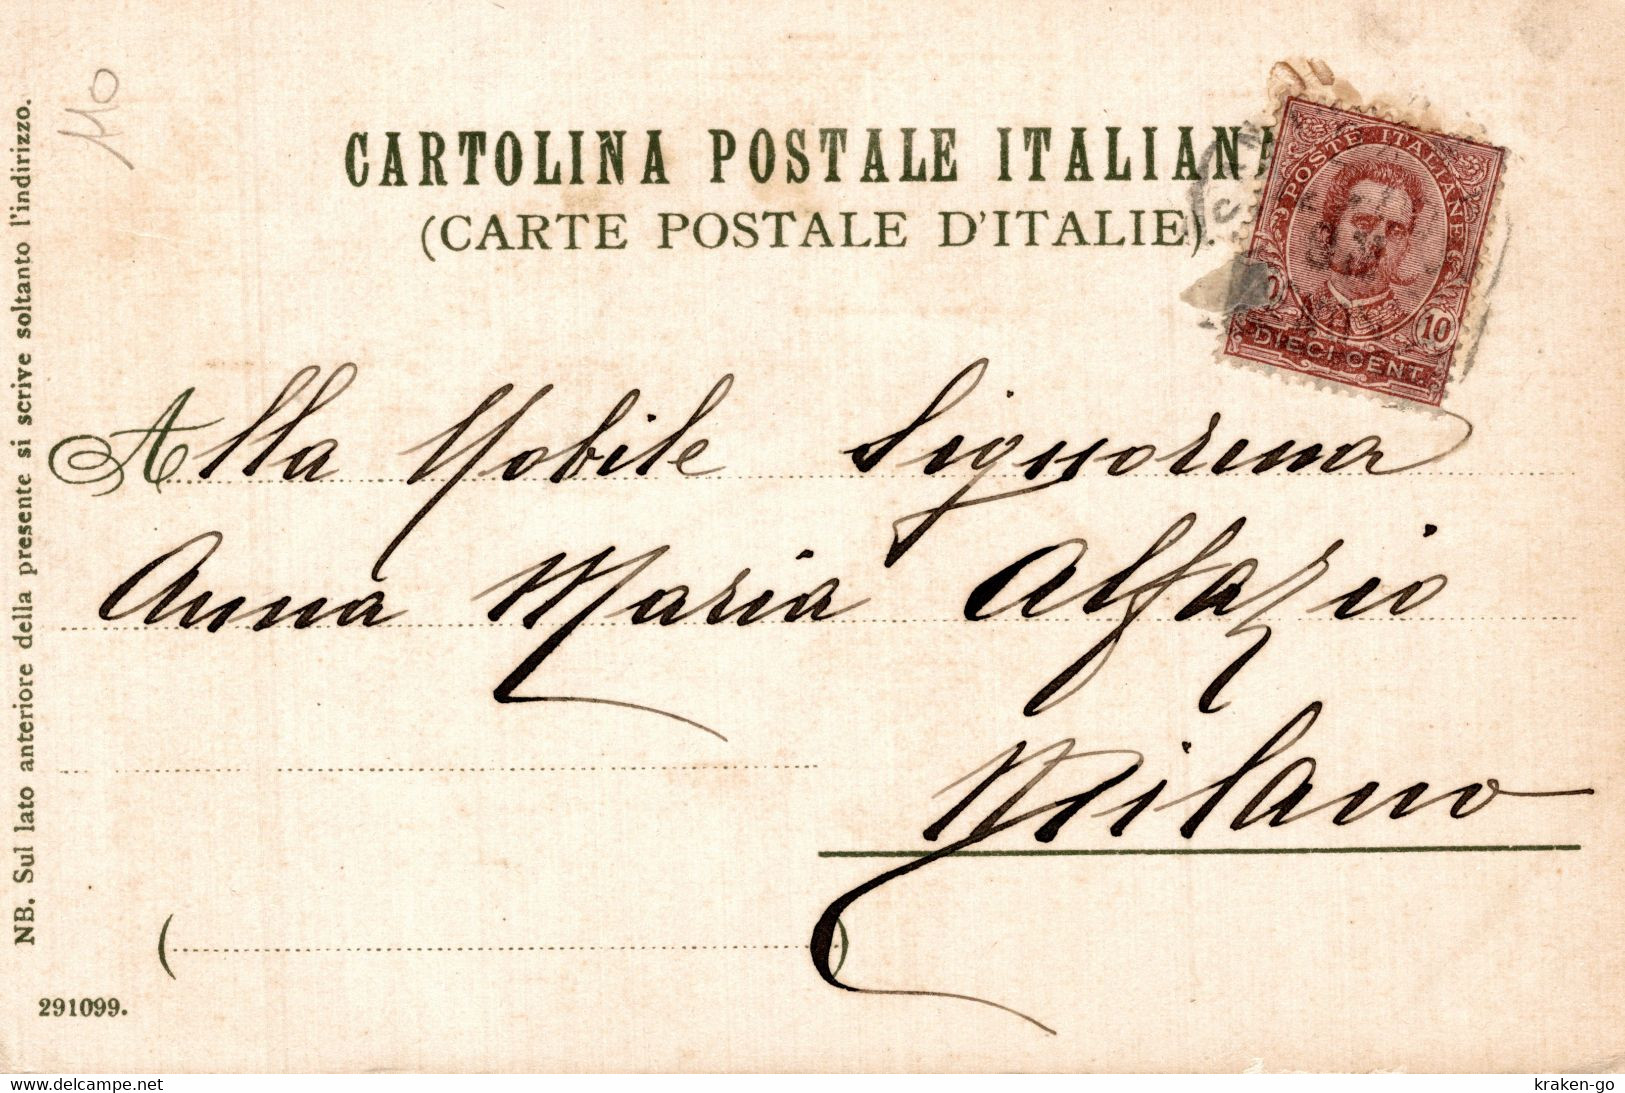 110
CARTOLINA POSTALE ITALIANA
(CARTE POSTALE D'ITALIE).
POSTE ITALIANE
10
DIECI CENT.
Alla Nobile Signorina
Anna Maria Alfazio
Milano
NB. Sul lato anteriore della presente si scrive soltanto l'indirizzo.
291099.
www.delcampe.net
kraken-go